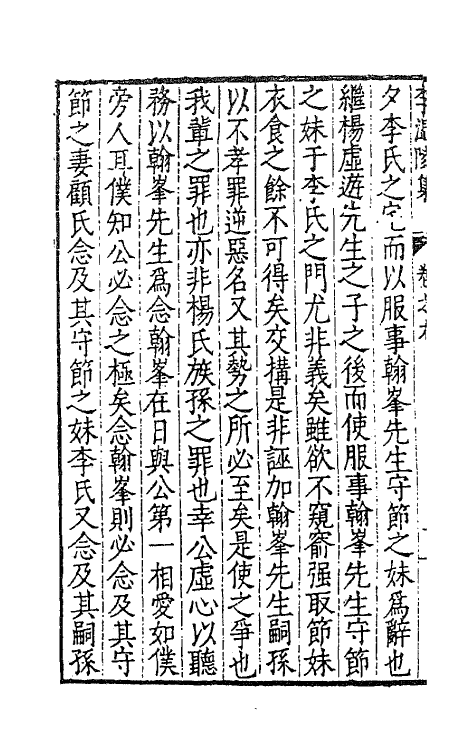 李溫陵集 卷之九
夕李氏之宅而以服事翰峯先生守節之妹爲辭也
繼楊虛遊先生之子之後而使服事翰峯先生守節
之妹于李氏之門尤非義矣雖欲不窺窬强取節妹
衣食之餘不可得矣交構是非誣加翰峯先生嗣孫
以不孝罪逆惡名又其勢之所必至矣是使之爭也
我輩之罪也亦非楊氏族孫之罪也幸公虛心以聽
務以翰峯先生爲念翰峯在日與公第一相愛如僕
旁人耳僕知公必念之極矣念翰峯則必念及其守
節之妻顧氏念及其守節之妹李氏又念及其嗣孫